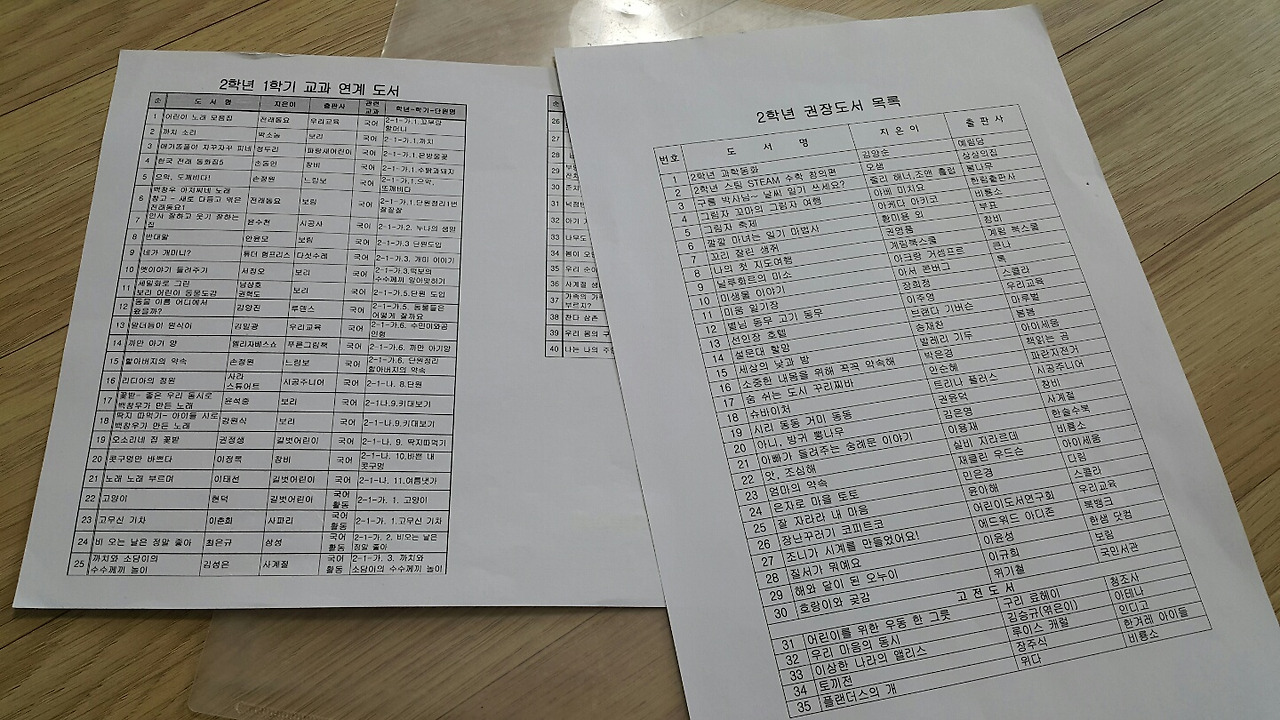 2학년 1학기 교과 연계 도서
순 도 서 명 지은이 출판사 관련교과 학년-학기-단원명
1 어린이 노래 모음집 전래동요 우리교육 국어 2-1-가.1.꼬부랑 할머니
2 까치 소리 박소농 보리 국어 2-1-가.1.까치
3 정두리 파랑새어린이 국어 2-1-가.1.은방울꽃
4 한국 전래 동화집5 손동인 창비 국어 2-1-가.1.수탉과돼지
5 으악, 도깨비다! 손정원 느림보 국어 2-1-가.1.으악, 도깨비다
6 백창우 아저씨네 노래 창고 - 새로 다듬고 엮은 전래동요1 전래동요 보림 국어 2-1-가.1.단원정리1번
7 인사 잘하고 웃기 잘하는 집 윤수천 시공사 국어 2-1-가.2. 누나의 생일
8 반대말 안윤모 보림 국어 2-1-가.3 단원도입
9 네가 개미니? 튜더 험프리스 다섯수레 국어 2-1-가.3. 개미 이야기
10 옛이야기 들려주기 서정오 보리 국어 2-1-가.3.떡보의 수수께끼 알아맞히기
11 세밀화로 그린 보리 어린이 동물도감 남상호 권혁도 보리 국어 2-1-가.5.단원 도입
12 동물 이름 어디에서 왔을까? 김양진 루덴스 국어 2-1-가.5. 동물들은 어떻게 잘까요
13 밤더듬이 원식이 김일광 우리교육 국어 2-1-가.6. 수민이와곰인형
14 까만 아기 양 엘리자베스쇼 푸른그림책 국어 2-1-가.6. 까만 아기양
15 할아버지의 약속 손정원 느림보 국어 2-1-가.6. 단원정리 할아버지의 약속
16 리디아의 정원 사라 스튜어트 시공주니어 국어 2-1-나. 8.단원
17 꽃밭- 좋은 우리 동시로 백창우가 만든 노래 윤석중 보리 국어 2-1-나.9.키대보기
18 딱지 따먹기- 아이들 시로 백창우가 만든 노래 강원식 보리 국어 2-1-나.9.키대보기
19 오소리네 집 꽃밭 권정생 길벗어린이 국어 2-1-나. 9. 딱지따먹기
20 콧구멍만 바쁘다 이정록 창비 국어 2-1-나. 10.바쁜 내 콧구멍
21 노래 노래 부르며 이태선 길벗어린이 국어 2-1-나. 11.여름냇가
22 고양이 현덕 길벗어린이 국어 활동 2-1-가. 1. 고양이
23 고무신 기차 이춘희 사파리 국어 활동 2-1-가. 1.고무신 기차
24 비 오는 날은 정말 좋아 최은규 삼성 국어 활동 2-1-가. 2. 비오는 날은 정말 좋아
25 까치와 소담이의 수수께끼 놀이 김성은 사계절 국어 활동 2-1-가. 3. 까치와 소담이의 수수께끼 놀이
순
26
27
28
29
30
31
32 아기
33 나무도
34 봄이 오
35 우리 순이
36 사계절
37 가족의 가 부르지?
38 잔다
39 우리 몸의 구
40 나는 나의 주
2학년 권장도서 목록
번호 도 서 명 지 은 이 출 판 사
1 2학년 과학동화 김양순 예림당
2 2학년 스팀 STEAM 수학 창의편 오샘 상상의집
3 구름 박사님~ 날씨 일기 쓰세요? 줄리 해너,조앤 홀럽 봄나무
4 그림자 꼬마의 그림자 여행 아베 미치요 한림출판사
5 그림자 축제 아케다 아키코 비룡소
6 깜깜 마녀는 일기 마법사 황미용 외 부표
7 꼬리 잘린 생쥐 권영품 창비
8 나의 첫 지도여행 계림북스쿨 계림 북스쿨
9 닐루화르의 미소 아크람 거셈푸르 큰나
10 미생물 이야기 아서 콘버그 톡
11 미움 일기장 장희정 스콜라
12 별님 동무 고기 동무 이주영 우리교육
13 선인장 호텔 브랜다 기버슨 마루벌
14 설문대 할망 송재찬 봄봄
15 세상의 낮과 밤 발레리 기두 아이세움
16 소중한 내몸을 위해 꼭꼭 약속해 박은경 책읽는 곰
17 숨 쉬는 도시 꾸리찌바 안순혜 파란자전거
18 슈바이처 트리나 폴러스 시공주니어
19 시리 동동 거미 동동 권윤덕 창비
20 아니, 방귀 뽕나무 김은영 사계절
21 아빠가 들려주는 숭례문 이야기 이용재 한솔수북
22 앗, 조심해 실비 지라르데 비룡소
23 엄마의 약속 재클린 우드슨 아이세움
24 은자로 마을 토토 민은경 다림
25 잘 자라라 내 마음 윤아해 스콜라
26 장난꾸러기 코피트코 어린이도서연구회 우리교육
27 조니가 시계를 만들었어요! 에드워드 아디존 북뱅크
28 질서가 뭐예요 이윤성 한샘 닷컴
29 해와 달이 된 오누이 이규희 보림
30 호랑이와 곶감 위기철 국민서관
고 전 도 서
31 어린이를 위한 우동 한 그릇 구리 료헤이 청조사
32 우리 마음의 동시 김승규(엮은이) 아테나
33 이상한 나라의 앨리스 루이스 캐럴 인디고
34 토끼전 장주식 한겨레 아이들
35 플랜더스의 개 위다 비룡소